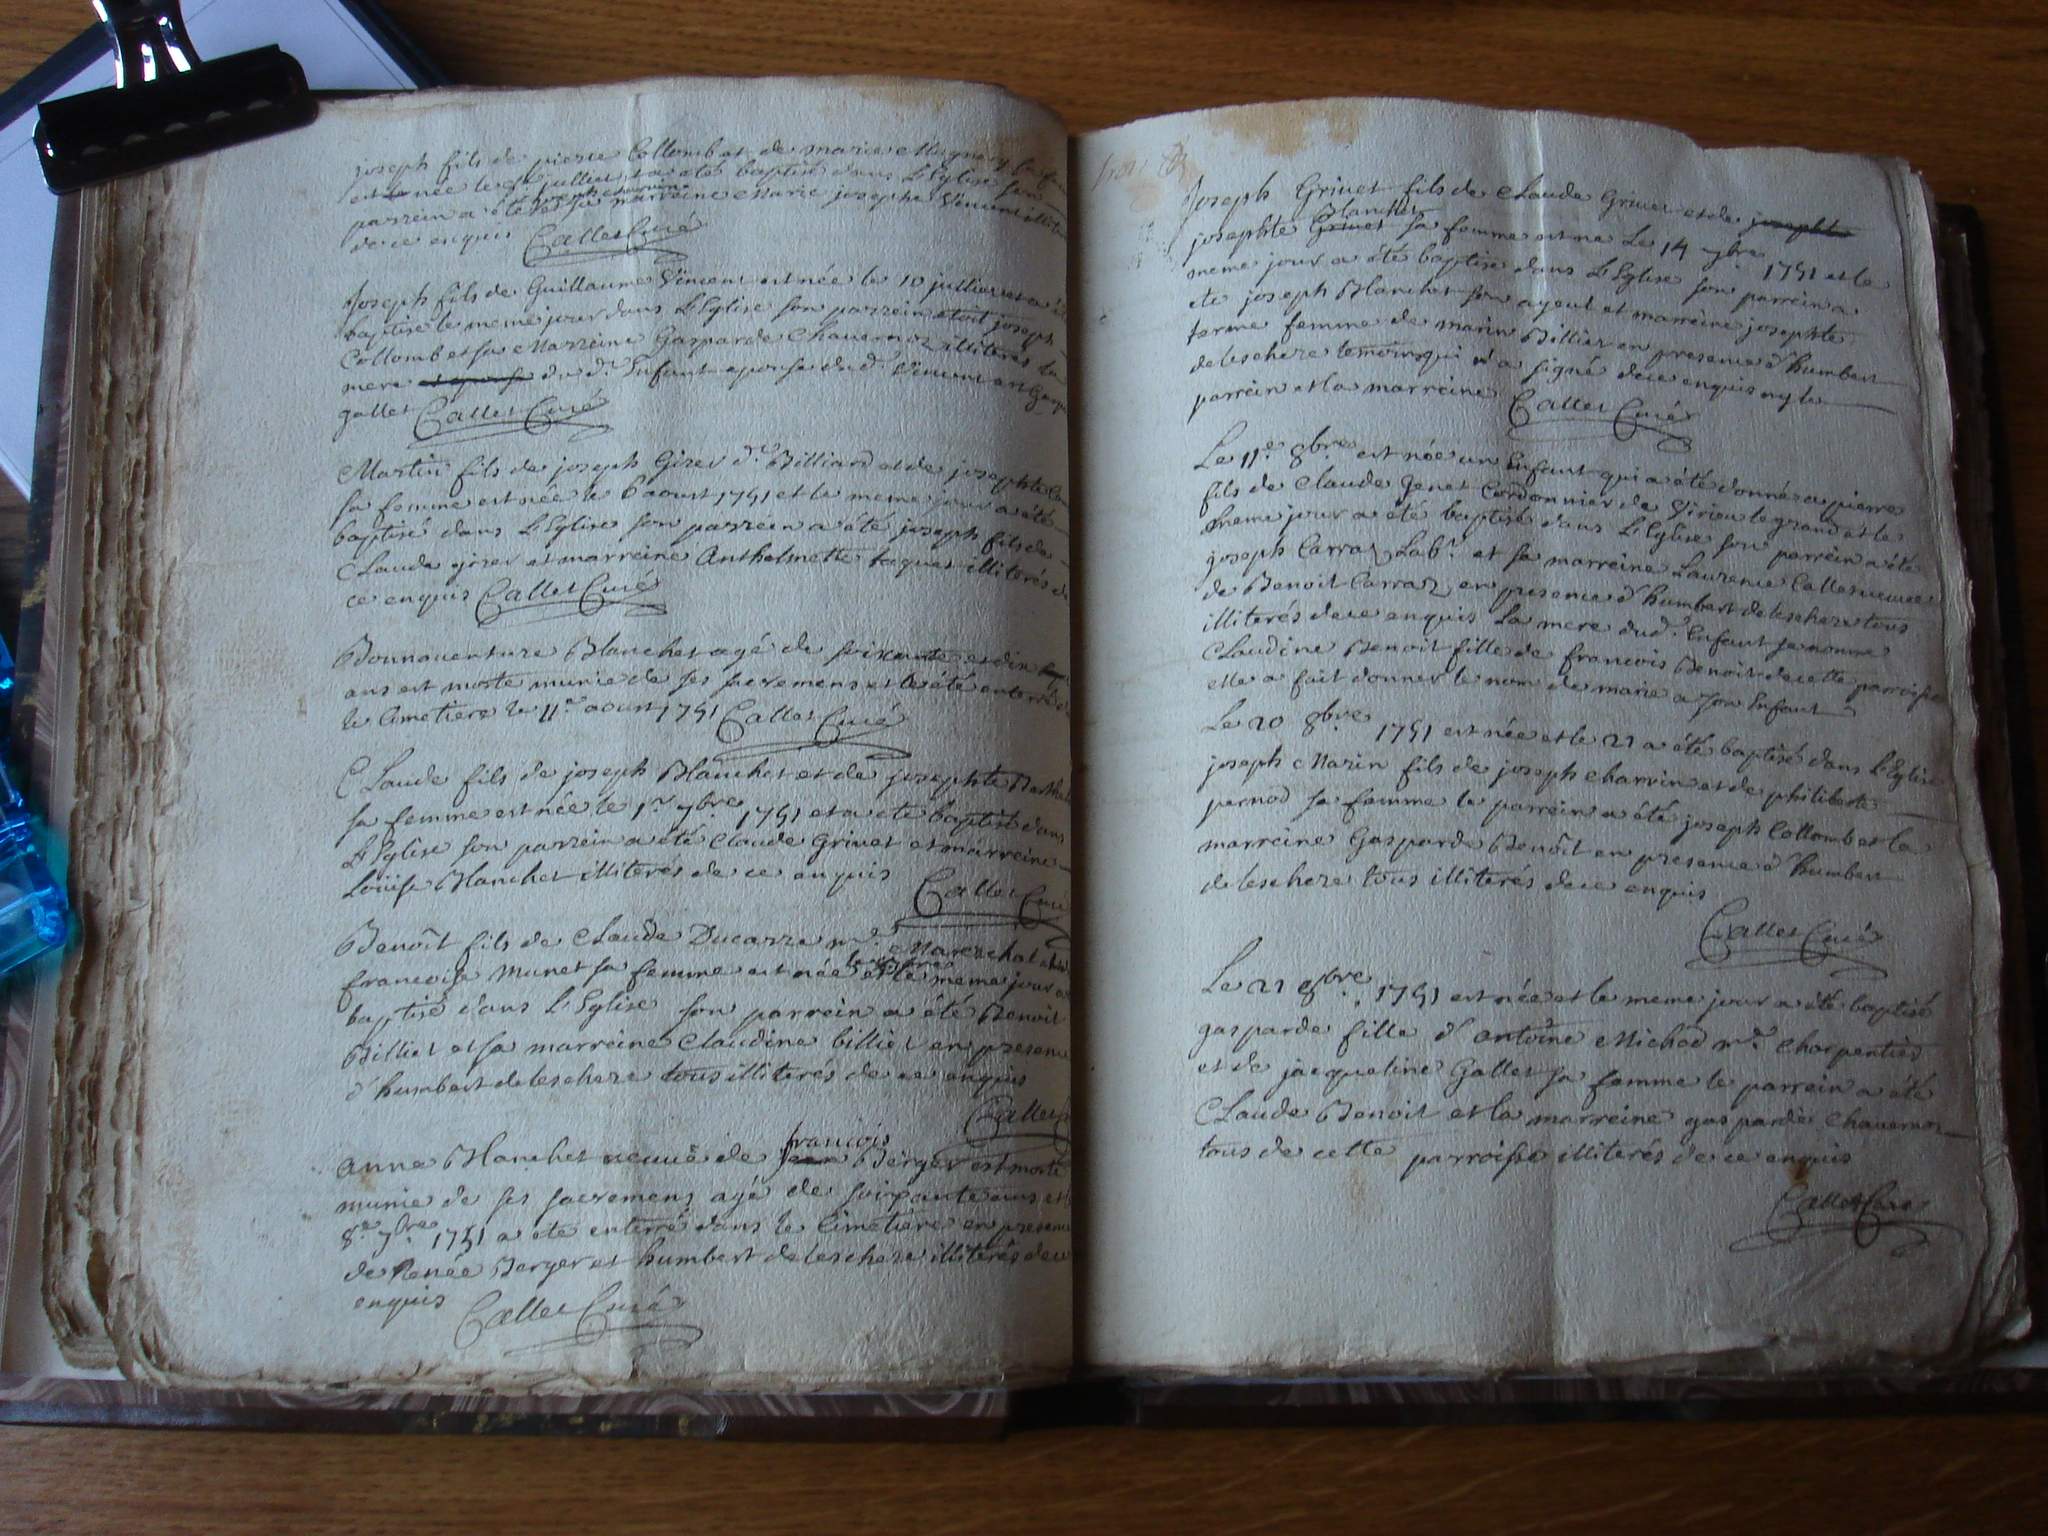 joseph fils de pierre Collomb et de marie Mugnery sa fe
est née le juilliet et a été baptisé dans L'Eglise son
joseph charvin
parrein a été et sa marreine Marie josephe Vincent illit
de ce enquis Callet Curé
Joseph fils de Guillaume Vincent est née le 10 julliet et a
baptisé le meme jour dans L'Eglise son parrein etoit joseph
Collomb et sa Marreine Gasparde Chavernoz illiterés la
mere du d.t Enfant epouse du d.t Vincent est
gallet Callet Curé
Martin fils de joseph Girer d.t Billiard et de josephte
sa femme est née le 6 aoust 1751 et le meme jour a été
baptisé dans L'Eglise son parrein a été joseph fils de
Claude girer et marreine Anthelmette taquet illiterés de
ce enquis Callet Curé
Bonnaventure Blanchet agé de soixante et dix
ans est morte munie de ses sacremens et a été enterré d
le Cimetiere le 11.e aoust 1751 Callet Curé
Claude fils de joseph Blanchet et de josephte
sa femme est née le 1.r 7bre 1751 et a eté baptisé dans
L'Eglise son parrein a été Claude Grivet et marreine
Loüise Blanchet illiterés de ce enquis
Callet Curé
Benoît fils de Claude Ducarre m.e Marechal
francoise Munet sa femme est née et le meme jour a
baptisé dans L'Eglise son parrein a été Benoit
Billiet et sa marreine Claudine billiet en presence
d'humbert delescheze tous illiterés de ce enquis
Callet
francois
Anne Blanchet veuve de Jean Berger est morte
munie de ses sacremens agé de soixante ans et l
8.e 7bre 1751 a eté enterré dans le Cimetiere en presen
de Renée Berger et humbert delescheze illiterés de ce
enquis Callet Curé
Joseph Grivet fils de Claude Grivet et de josephte
Blanchet
josephte Grivet sa femme est ne Le 14 7bre 1751 et le
meme jour a été baptisé dans L'Eglise son parrein a
ete joseph Blanchet son ayeul et marreine josephte
ferme femme de marin Billiet en presence d'humbert
delescheze temoins qui n'a signé de ce enquis ny le
parrein et la marreine Callet Curé
Le 11.e 8bre est née un Enfant qui a été donné a pierre
fils de Claude Genet Cordonnier de Virieu le grand et le
meme jour a été baptisé dans L'Eglise son parrein a été
joseph Carraz Lab.r et sa marreine Laurence Callet veuve
de Benoit Carraz en presence d'humbert delescheze tous
illiterés de ce enquis La mere du d.t Enfant se nomme
Claudine Benoit fille de francois Benoit de cette parroisse
elle a fait donner le nom de marie a son Enfant
Le 20 8bre 1751 est née et le 21 a été baptisé dans L'Eglise
joseph Marin fils de joseph charvin et de philiberte
pernod sa femme le parrein a été joseph Collomb et la
marreine Gasparde Benoît en presence d'humbert
delescheze tous illiterés de ce enquis
Callet Curé
Le 21 8bre 1751 est née et le meme jour a été baptisé
gasparde fille d'antoine Michod m.e Charpentier
et de jacqueline Gallet sa femme le parrein a été
Claude Benoit et la marreine gasparde Chavernoz
tous de cette parroisse illiterés de ce enquis
Callet Curé